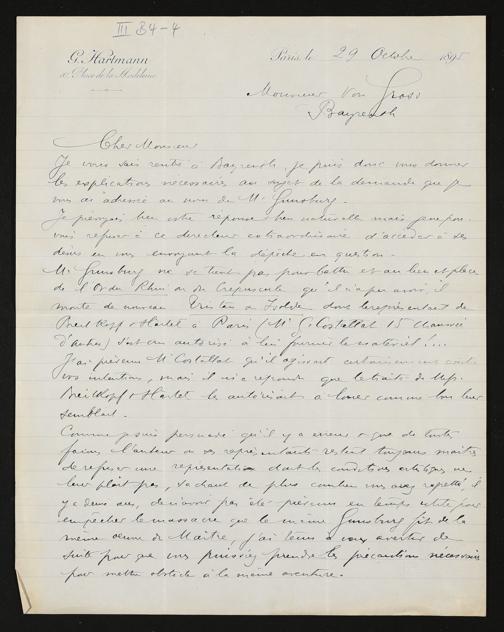 III B4-4
G. Hartmann
Place de la Madeleine
Paris, le 29 Octobre 1895
Monsieur Von Gross
Bayreuth
Cher Monsieur
Je vous sais rentré à Bayreuth, je puis donc vous donner
les explications nécessaires au sujet de la demande que je
vous ai adressée au nom de Mr Gunsburg.
Je prévoyais bien votre réponse bien naturelle mais je ne pou
vais refuser à ce directeur extraordinaire d'accéder à ses
désirs en vous envoyant la dépêche en question.
Mr Gunsburg ne se tient pas pour battu et au lieu et place
de l'Or du Rhin ou du Crépuscule qu'il n'a pu avoir il
monte de nouveau Tristan & Isolde dont le représentant de
Breitkopf & Hartel à Paris (Mr Costallat 15 Chaussée
d'Antin) s'est cru autorisé à lui fournir le matériel!...
J'ai prévenu Mr Costallat qu'il agissait certainement contre
vos intentions, mais il m'a répondu que le traité de Mrs
Breitkopf & Hartel les autorisait à louer comme bon leur
semblait.
Comme je suis persuadé qu'il y a erreur & que de toutes
façons l'auteur ou ses représentants restent toujours maîtres
de refuser une représentation dont les conditions artistiques ne
leur plait pas, sachant de plus combien vous avez regretté il
y a deux ans, de n'avoir pas été prévenu en temps utile pour
empêcher le massacre que le même Gunsburg fit de la
même œuvre du Maître, j'ai tenu à vous avertir de
suite pour que vous puissiez prendre les précautions nécessaires
pour mettre obstacle à la même aventure.